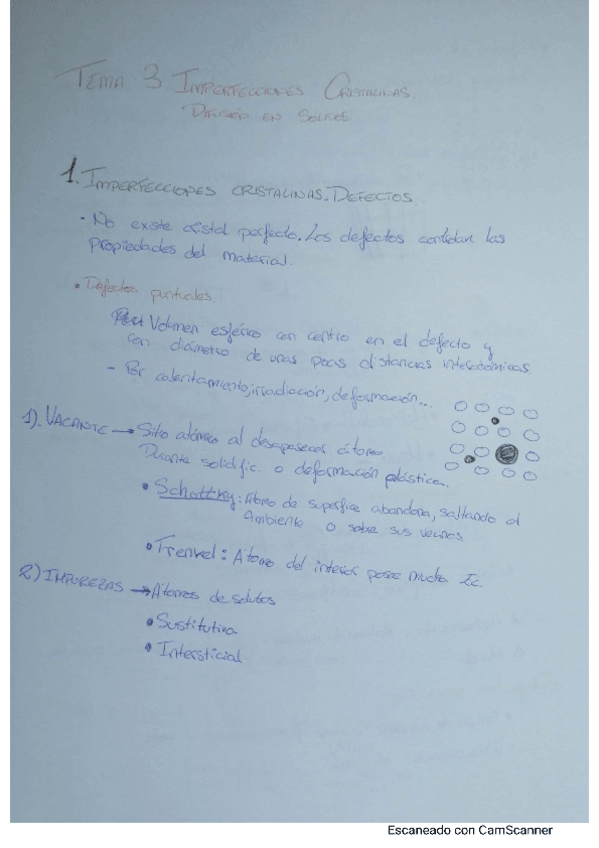 TEMA 3 IMPERFECCIONES CRISTALINAS.
DIFUSIÓN EN SÓLIDOS
1. IMPERFECCIONES CRISTALINAS. DEFECTOS
• No existe cristal perfecto. Los defectos cambian las
propiedades del material.
• Defectos puntuales
Volumen esférico con centro en el defecto y
con diámetro de unas pocas distancias interatómicas
- Por calentamiento, irradiación, deformación...
1). VACANTE → Sitio atómico al desaparecer átomo
Durante solidific. o deformación plástica...
• Schottky: Átomo de superficie abandona, saltando al
ambiente o sobre sus vecinos
• Frenkel: Átomo del interior posee mucha Ec
2) IMPUREZAS → Átomos de solutos
• Sustitutiva
• Intersticial
Escaneado con CamScanner